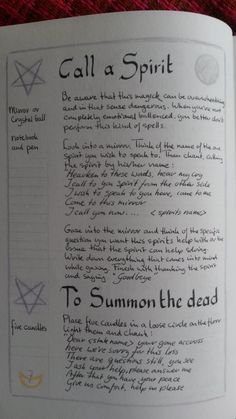 Call a Spirit
Be aware that this magick can be overwhelming
and in that sense dangerous. When you're not
completely emotional ballenced, you better don't
perform this kind of spells.
Mirror or
Crystal ball
notebook
and pen
Look into a mirror. Think of the name of the
spirit you wish to speak to. Then chant, calling
the spirit by his/her name:
Hearken to these words, hear my cry
I call to you Spirit from the other side
I wish to speak to you here, come to me
Come to this mirror
I call you now.... <spirits name>
Gaze into the mirror and think of the specific
question you want this spirits help with or the
issue that the spirit can help solving.
Write down everything that comes into mind
while gazing. Finish with thanking the spirit
and saying "Goodbye"
To Summon the dead
five candles
Place five candles in a loose circle on the floor
light them and chant:
"Dear <state name> your gone accross
here we're sorry for this loss
There are questions still, you see
I ask your help, please answer me
After that you have your peace
Give us comfort, help us please